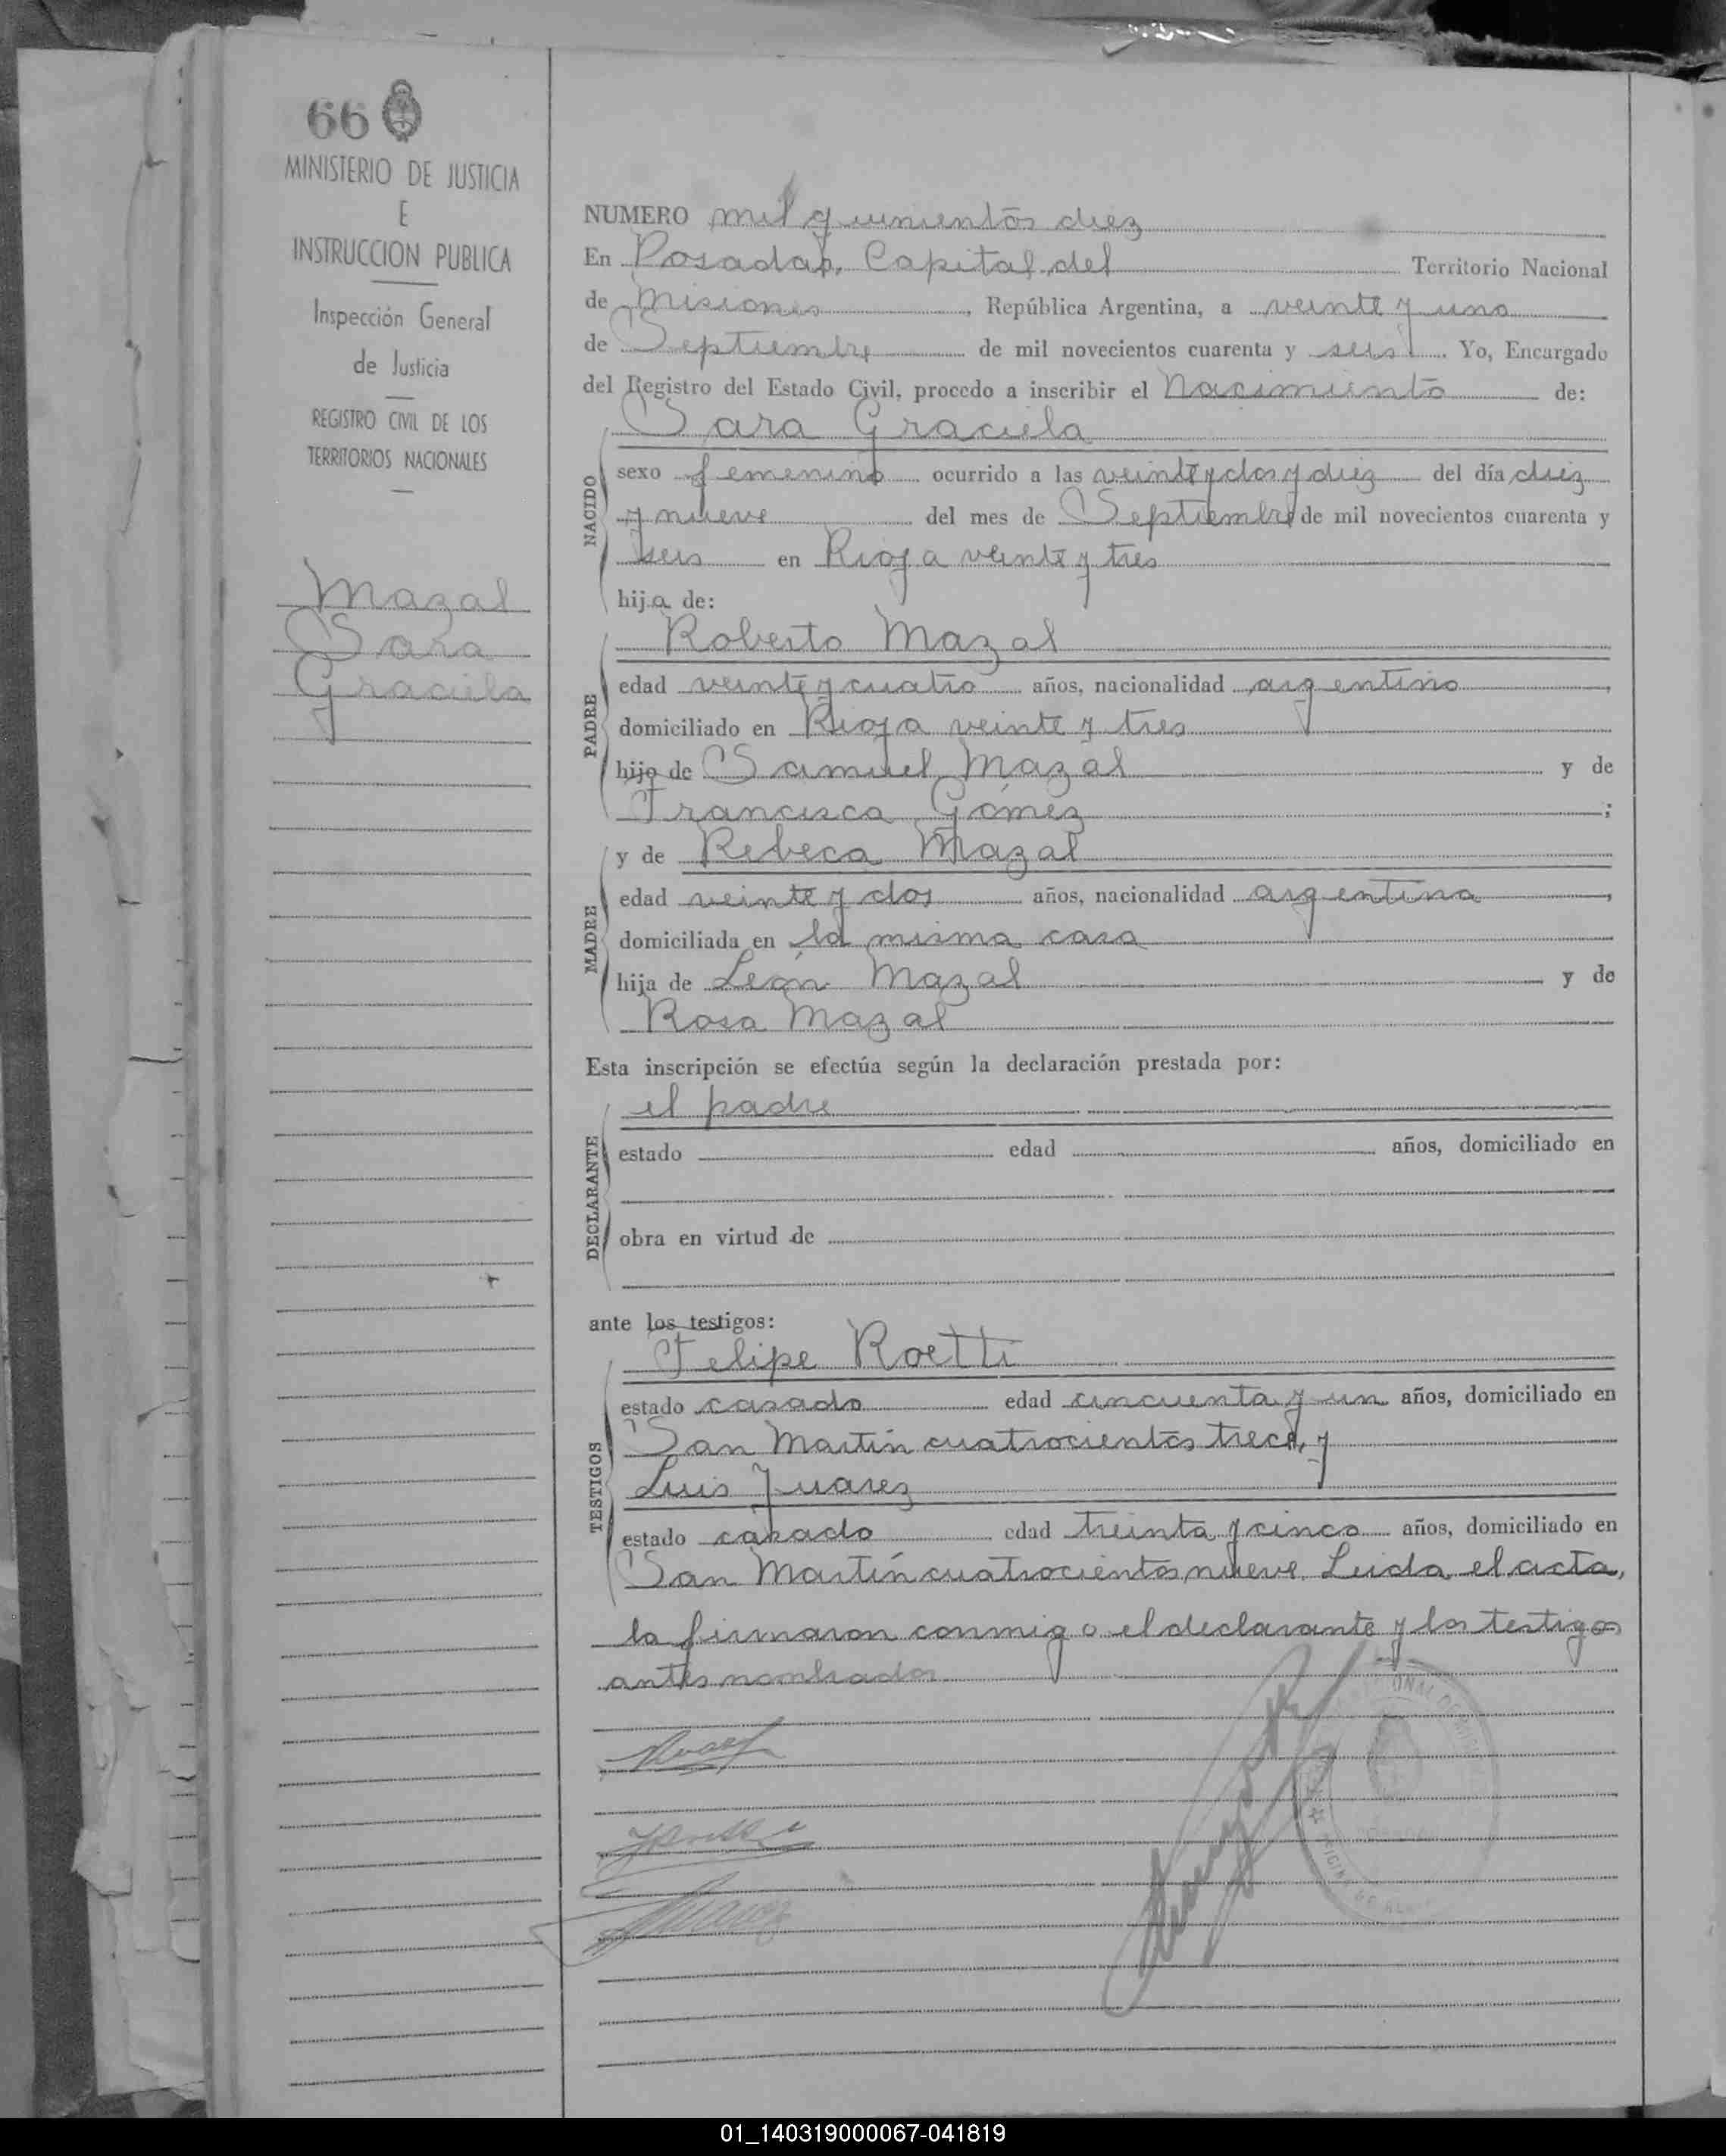 66
MINISTERIO DE JUSTICIA
E
INSTRUCCION PUBLICA
Inspección General
de Justicia
REGISTRO CIVIL DE LOS
TERRITORIOS NACIONALES
Mazal
Sara
Graciela
NUMERO mil quinientos diez
En Posadas, Capital del Territorio Nacional
de Misiones, República Argentina, a veinte y uno
de Septiembre de mil novecientos cuarenta y seis. Yo, Encargado
del Registro del Estado Civil, procedo a inscribir el Nacimiento de:
Sara Graciela
NACIDO
sexo femenino ocurrido a las veinte y dos y diez del día diez
y nueve del mes de Septiembre de mil novecientos cuarenta y
seis en Rioja veinte y tres
hija de:
PADRE
Roberto Mazal
edad veinte y cuatro años, nacionalidad argentino,
domiciliado en Rioja veinte y tres
hijo de Samuel Mazal y de
Francisca Gómez;
MADRE
y de Rebeca Mazal
edad veinte y dos años, nacionalidad argentina,
domiciliada en la misma casa
hija de León Mazal y de
Rosa Mazal
Esta inscripción se efectúa según la declaración prestada por:
DECLARANTE
el padre
estado edad años, domiciliado en
obra en virtud de
ante los testigos:
TESTIGOS
Felipe Roetti
estado casado edad cincuenta y un años, domiciliado en
San Martín cuatrocientos trece, y
Luis Juarez
estado casado edad treinta y cinco años, domiciliado en
San Martín cuatrocientos nueve. Leida el acta,
la firmaron conmigo el declarante y los testigos
antes nombrados
01_140319000067-041819